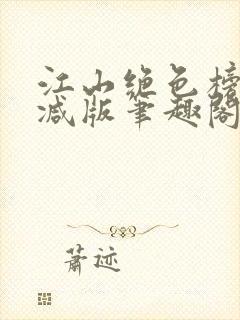 江山绝色榜
减版笔趣阁
萧迹